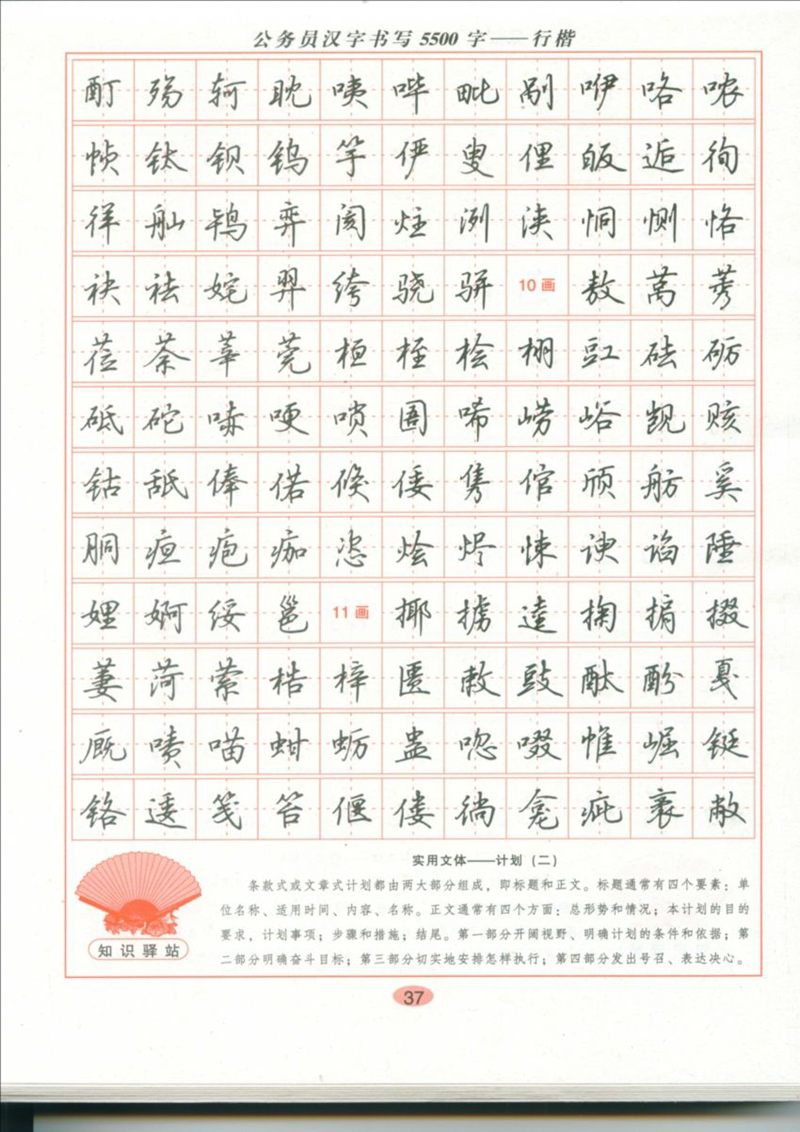 公务员汉字书写5500字——行楷
酊 殇 轲 耽 咦 哔 毗 剐 咿 咯 哝
帧 钛 钡 钨 竽 俨 叟 俚 皈 逅 徇
徉 舢 鸨 弈 阂 炷 洌 浃 恫 恻 恪
袂 祛 姹 羿 绔 骁 骈 10画 敖 莴 莠
莅 荼 莘 莞 桓 桎 桧 栩 豇 砝 砺
砥 砣 哧 哽 唢 圄 唏 崂 峪 觊 赅
钴 舐 俸 偌 候 倭 隽 倌 颀 舫 奚
胴 疽 疱 痂 恣 烩 烬 悚 谀 谄 陲
娌 婀 绥 邕 11画 揶 掳 逵 掬 掮 掇
萋 菏 萦 梏 梓 匿 敕 豉 酞 酚 戛
厩 啧 喵 蚶 蛎 蛊 唿 啜 惟 崛 铤
铬 逶 笺 笞 偃 偻 徜 龛 疵 袤 敝
实用文体——计划（二）
条款式或文章式计划都由两大部分组成，即标题和正文。标题通常有四个要素：单
位名称、适用时间、内容、名称。正文通常有四个方面：总形势和情况；本计划的目的
要求，计划事项；步骤和措施；结尾。第一部分开阔视野、明确计划的条件和依据；第
二部分明确奋斗目标；第三部分切实地安排怎样执行；第四部分发出号召、表达决心。
知识驿站
37